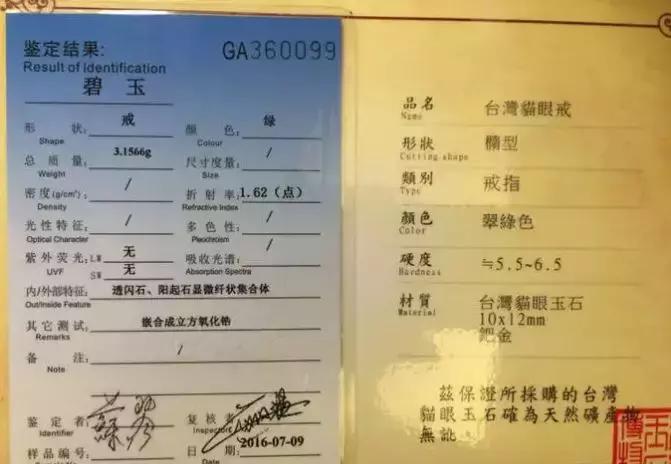 鉴定结果: GA360099
Result of Identification
碧 玉
形 状: 戒 颜 色: 绿
Shape Colour
总 质 量: 3.1566g 尺寸度量: /
Weight Size
密度(g/cm³): / 折 射 率: 1.62（点）
Density Refractive Index
光性特征: / 多 色 性: /
Optical Character Pleochroism
紫外荧光: LW 无 吸收光谱: /
UVF SW 无 Absorption Spectra
内/外部特征: 透闪石、阳起石显微纤状集合体
Out/Inside Feature
其它测试: 嵌合成立方氧化锆
Remarks
备 注: /
Note
鉴 定 者: 复 核 者:
Identifier Inspector
样品编号: 日 期: 2016-07-09
Date
品名 台灣貓眼戒
Name
形狀 橢型
Cutting shape
類別 戒指
Type
顏色 翠綠色
Color
硬度 ≒5.5~6.5
Hardness
材質 台灣貓眼玉石
Material 10x12mm
鈀金
茲保證所採購的台灣
貓眼玉石確為天然礦產物
無訛